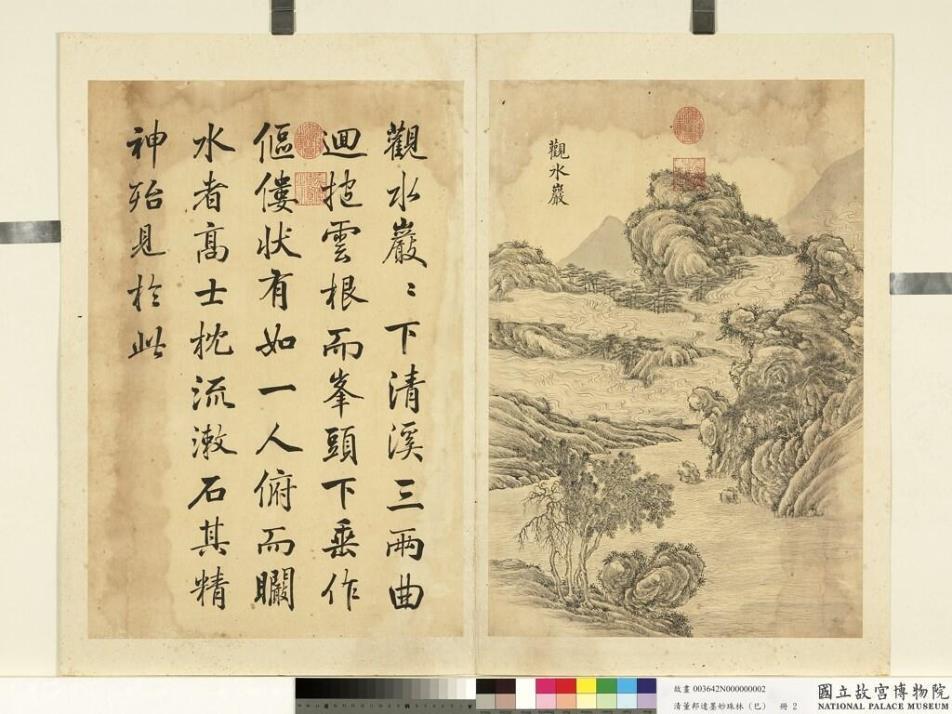 觀水巖
觀水巖〻下清溪三兩曲
迴抱雲根而峯頭下垂作
傴僂狀有如一人俯而瞰
水者高士枕流漱石其精
神殆見於此
故畫 003642N000000002
清董邦達墨妙珠林（巳） 冊 2
國立故宮博物院
NATIONAL PALACE MUSEUM